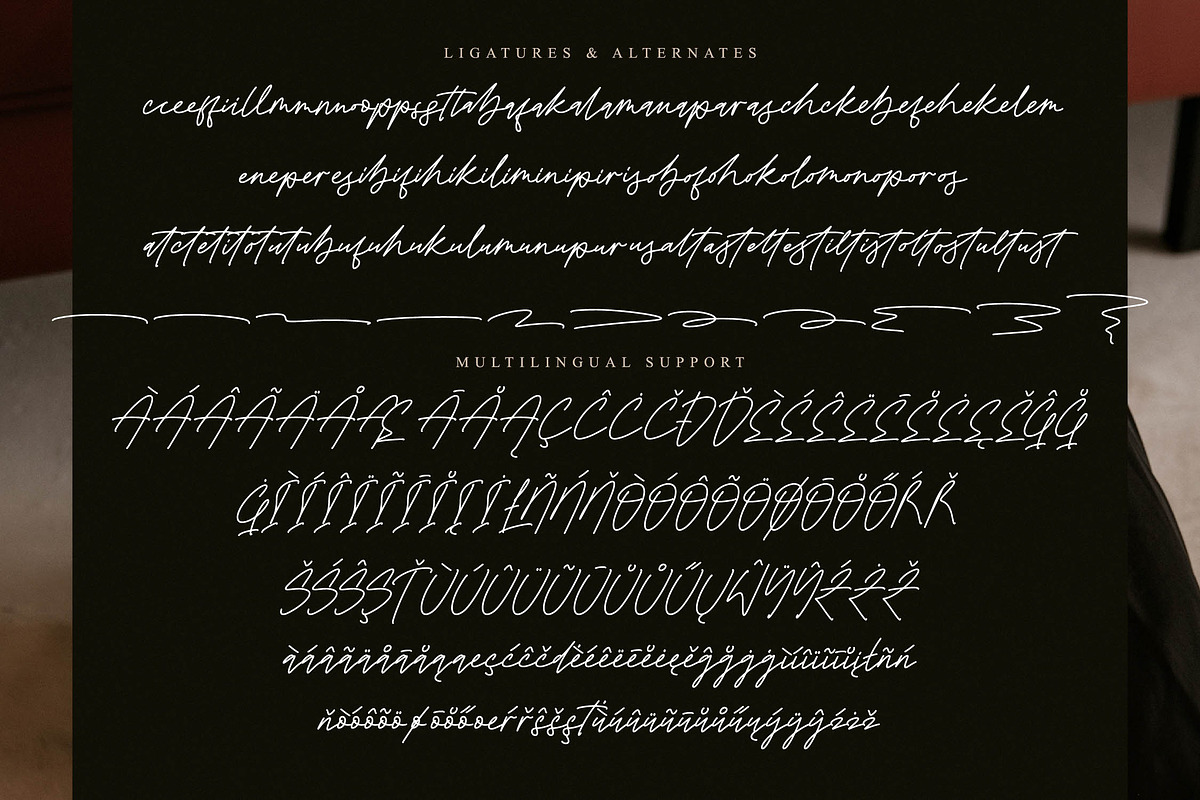 LIGATURES & ALTERNATES
cceeffiillmmnnooppssttabafakalamanaparaschckebefehekelem
eneperesibifihikiliminipirisobofohokolomonoporos
atctetitotutubufuhukulumunupurusaltasteltestiltistoltostultust
MULTILINGUAL SUPPORT
ÀÁÂÃÄÅÆ ĀÅĄÇĈĊČĐĎÈÉÊËĒE̊ĖĘĚĜG̊
ĠÌÍÎÏĨĪI̊ĮİŁÑŃŇÒÓÔÕÖØŌO̊ŐŔŘ
ŠŚŜŞŤÙÚÛÜŨŪŮŮŰŲŴŸŶŹŻŽ
àáâãäåāåąaeçćĉčdèéêëēe̊ėęěĝg̊ġgìíîïĩīi̊įłñń
ňòóôõöøōo̊őoeŕřŝšşťùúûüũūůůűųýÿŷźżž